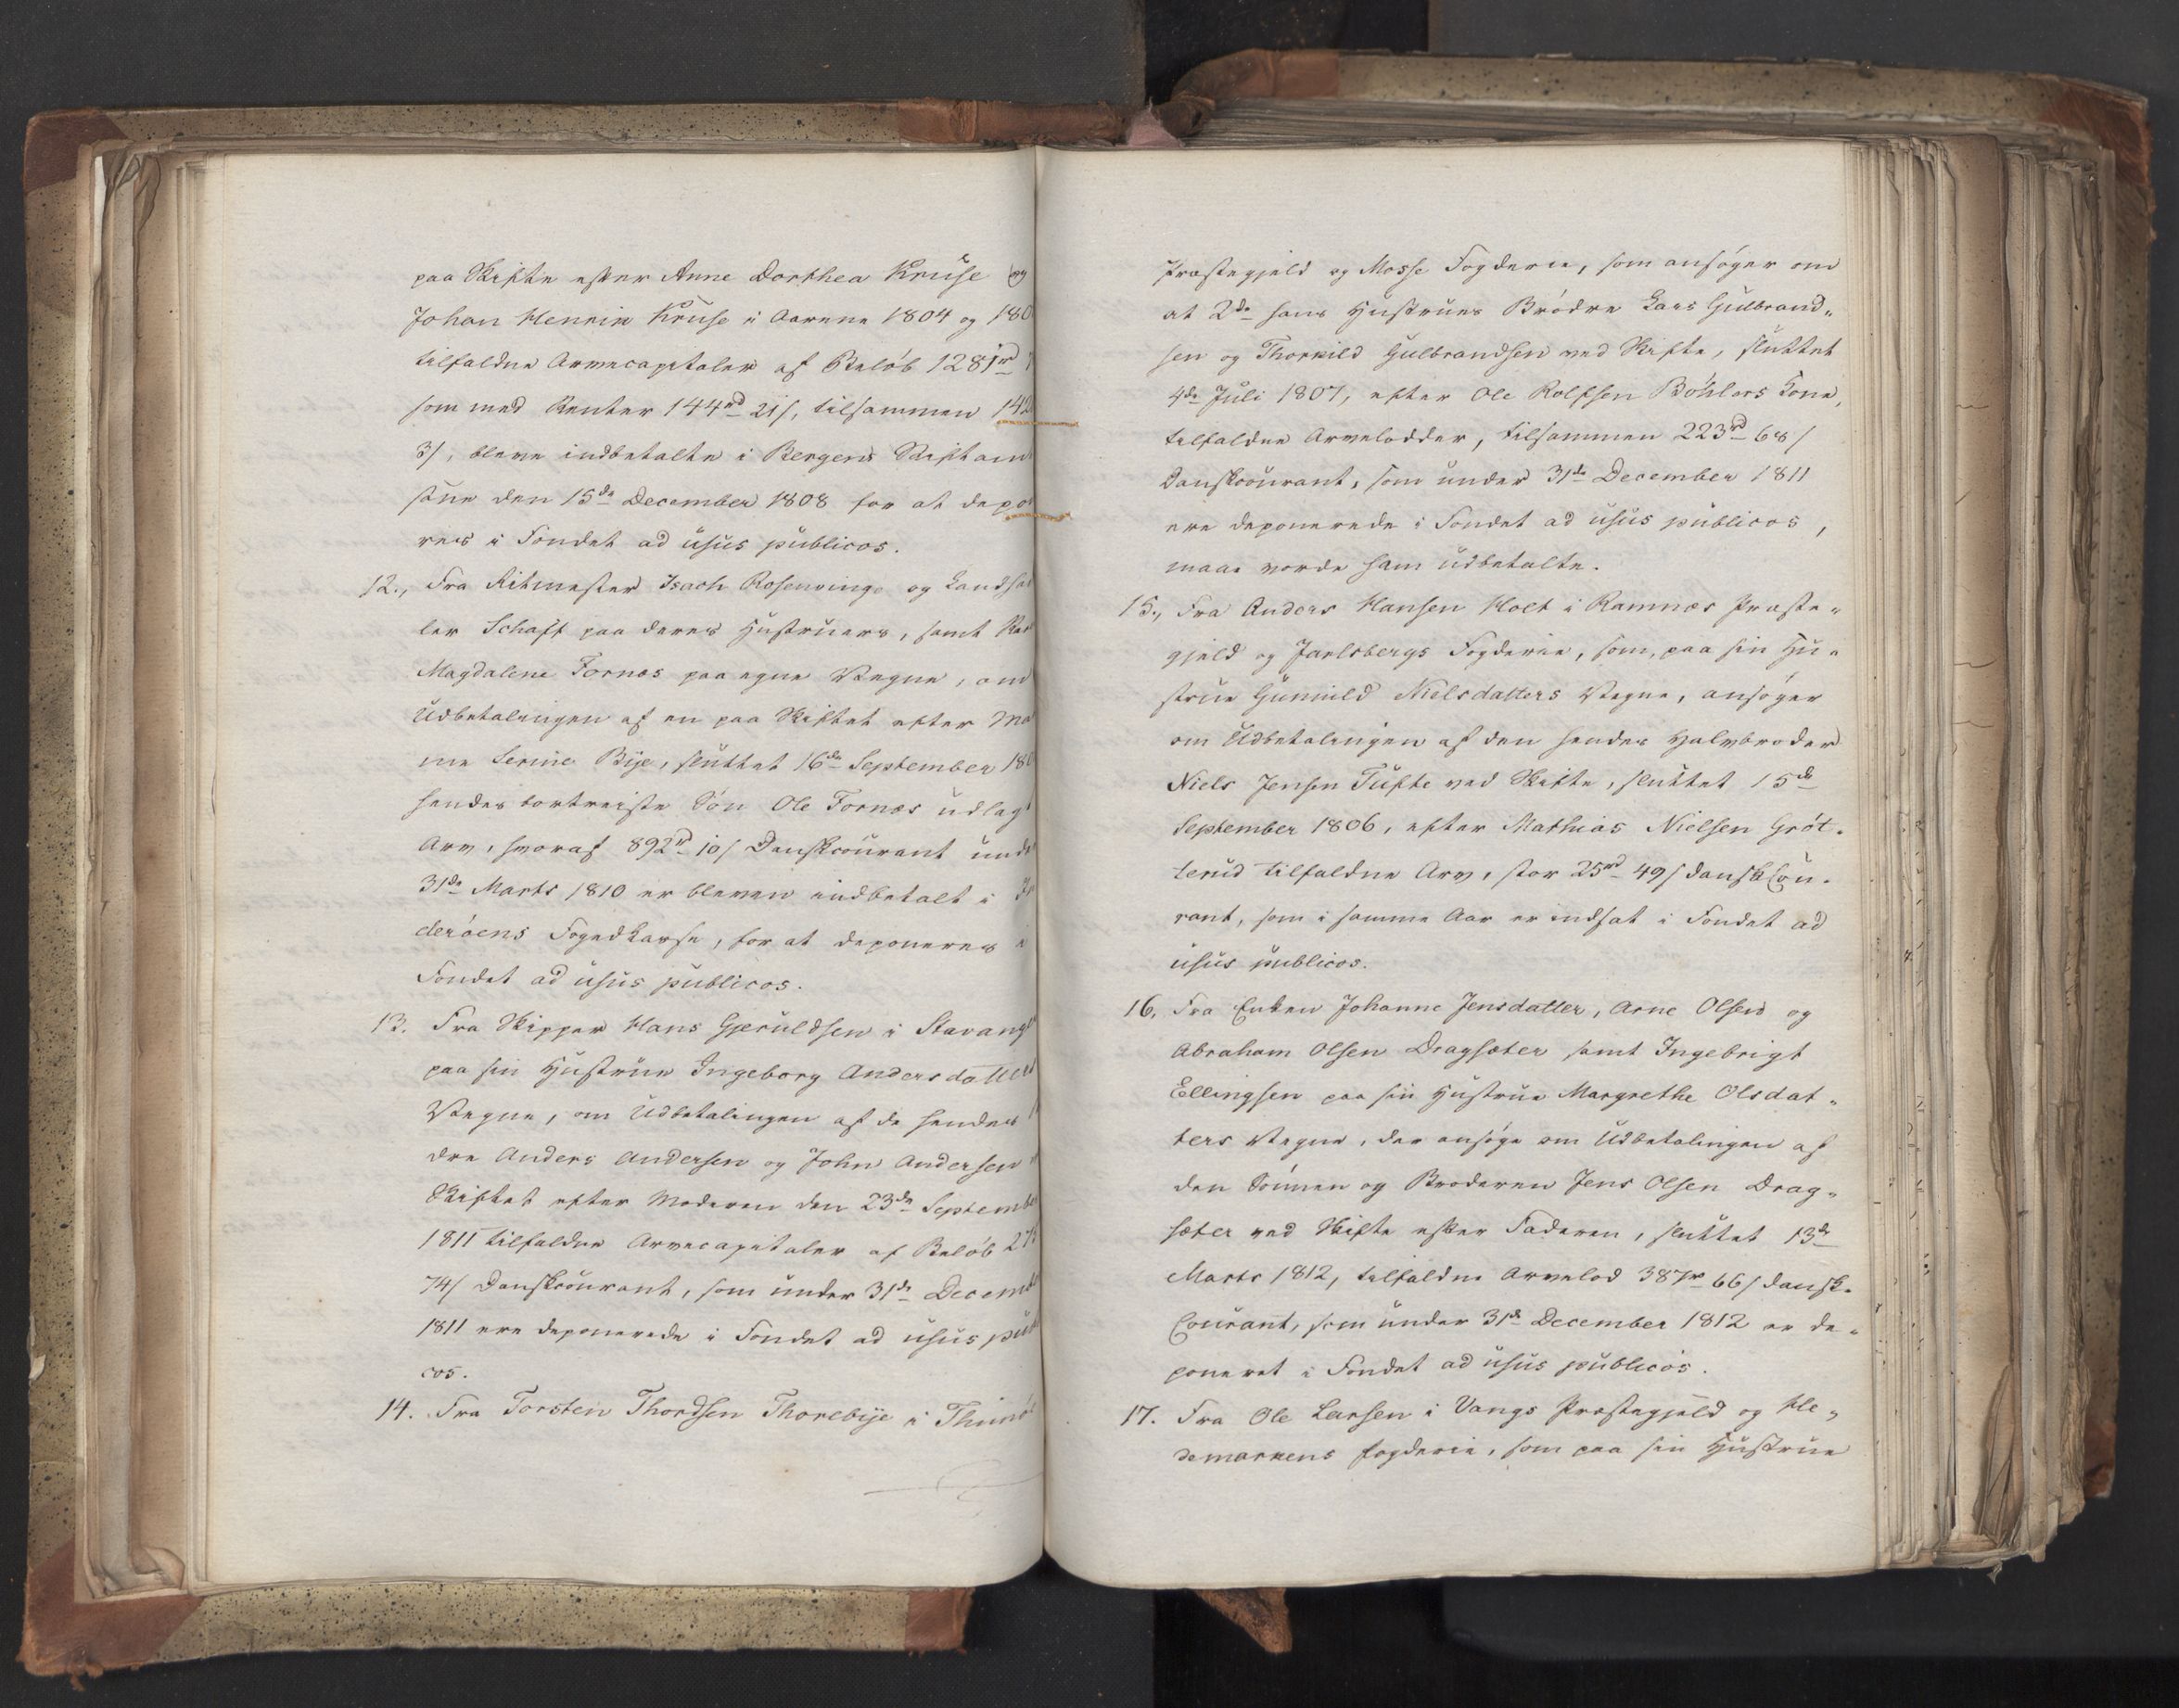 paa Skifte efter Anne Dorthea Kruse og
Johan Henrik Kruse i Aarene 1804 og 180
tilfaldne Arvecapitaler af Beløb 1281rd
som med Renter 144rd 21s, tilsammen 142
3s, bleve indbetalte i Bergens Stiftam
stue den 15de December 1808 for at depo
res i Fondet ad usus publicos.
12., Fra Ritmester Isach Rosenvinge og Landha
ler Schaft paa deres Hustruers, samt
Magdalene Fornæs paa egne Vegne, om
Udbetalingen af en paa Skiftet efter Ma
me Serine Bye, sluttet 16de September 180
hendes bortreiste Søn Ole Fornæs udlagt
Arv, hvoraf 892rd 10s Danskcourant unde
31de Marts 1810 er bleven indbetalt i In
derøens Fogedkasse, for at deponeres i
Fondet ad usus publicos.
13. Fra Skipper Hans Gjeruldsen i Stavang
paa sin Hustrue Ingeborg Andersdatters
Vegne, om Udbetalingen af de hendes
dre Anders Andersen og John Andersen
Skiftet efter Moderen den 23de Septembe
1811 tilfaldne Arvecapitaler af Beløb 27
74s Danskcourant, som under 31de Decemb
1811 ere deponerede i Fondet ad usus publ
cos.
14. Fra Torsten Thordsen Thorebye i Thunøe
Præstegjeld og Mosse Fogderie, som ansøger om
at 2de hans Hustrues Brødre Lars Gulbrand-
sen og Thorkild Gulbrandsen ved Skifte, sluttet
4de Juli 1807, efter Ole Rolfsen Bøhlers Kone,
tilfaldne Arvelodder, tilsammen 223rd 68s
Danskcourant, som under 31de December 1811
ere deponerede i Fondet ad usus publicos,
maae vorde ham udbetalte.
15., Fra Anders Hansen Holt i Ramnæs Præste-
gjeld og Jarlsbergs Fogderie, som, paa sin Hu-
strue Gunnild Nielsdatters Vegne, ansøger
om Udbetalingen af den hendes Halvbroder
Niels Jensen Tufte ved Skifte, sluttet 15de
September 1806, efter Mathias Nielsen Grøt-
terud tilfaldne Arv, stor 25rd 49s dansk Cou-
rant, som i samme Aar er indsat i Fondet ad
usus publicos.
16. Fra Enken Johanne Jensdatter, Arne Olsen og
Abraham Olsen Dragsæter samt Ingebrigt
Ellingsen paa sin Hustrue Margrethe Olsdat-
ters Vegne, der ansøge om Udbetalingen af
den Sønnen og Broderen Jens Olsen Drag-
sæter ved Skifte efter Faderen, sluttet 13de
Marts 1812, tilfaldne Arvelod 387rd 66s dansk-
Courant, som under 31de December 1812 er de-
poneret i Fondet ad usus publicos.
17. Fra Ole Larsen i Vangs Præstegjeld og He-
demarkens Fogderie, som paa sin Hustrue